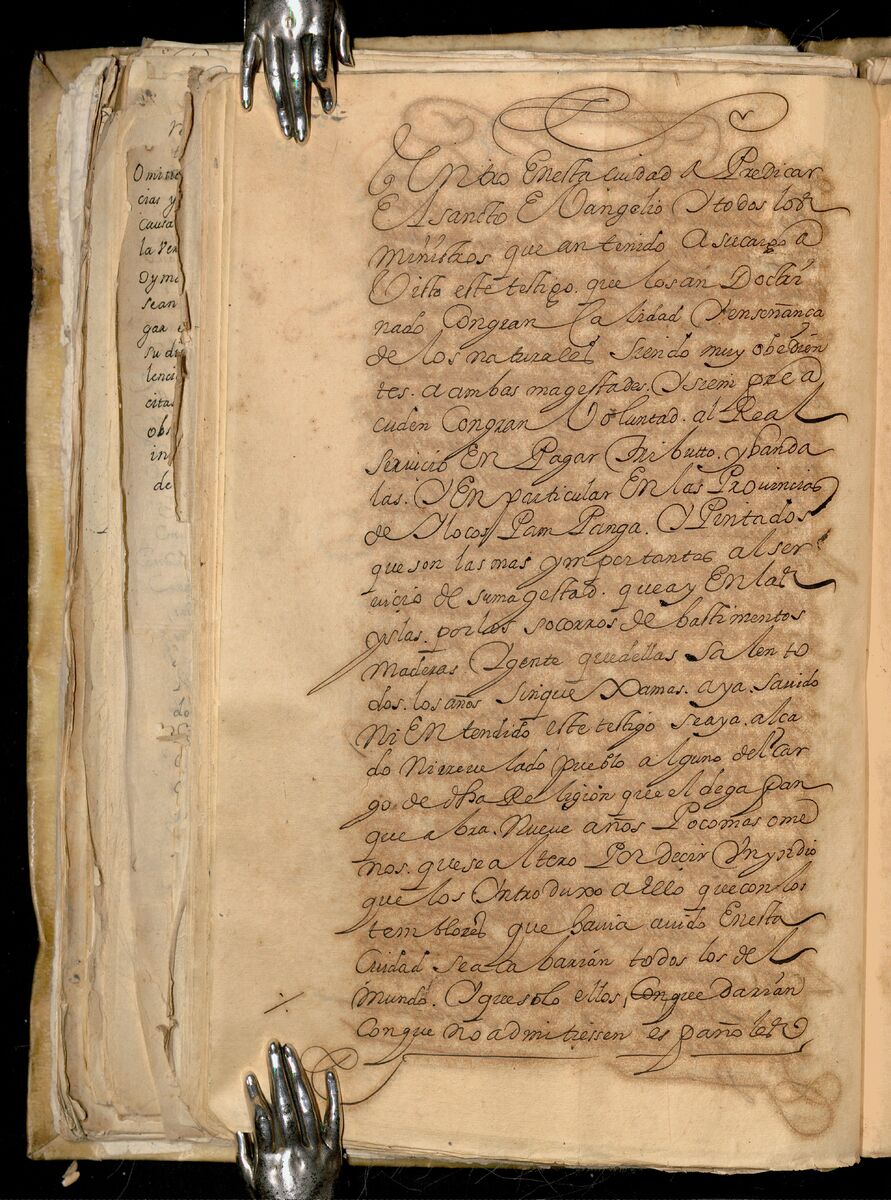 Omisse
cias y
causa
la Ven
Dymi
sean
gar e
su di
lenci
citas
obs
in
de
Q Entro Enesta ciudad A Predicar
El sancto Evangelio Y todos los
ministros que an tenido A su cargo a
Visto este testigo. que los an Doctri
nado Con gran Calidad Y enseñança
de los naturales siendo muy obedien
tes. a ambas magestades. Y siempre a
cuden Con gran Voluntad. al Real
servicio En Pagar Tributto. y banda
las. Y En particular En las Provincias
de Ylocos Pam Panga. Y Pintados
que son las mas ymportantes al ser
vicio de su magestad. que ay En las
yslas. por los socorros de bastimentos
maderas Y gente que dellas salen to
dos. los años sin que Xamas. aya. savido
Ni En tendido este testigo se aya. alca
do Ni revelado pueblo alguno del car
go. de dha Religion que el de ga pan
que abra. Nueve años Poco mas o me
nos. que se altero Por decir Un yndio
que los Yntroduxo a ello que con los
temblores que havia avido Enesta
Ciudad se acabarian todos los del
mundo. Y que solo ellos, Con que darian
Con que no admitiessen españoles